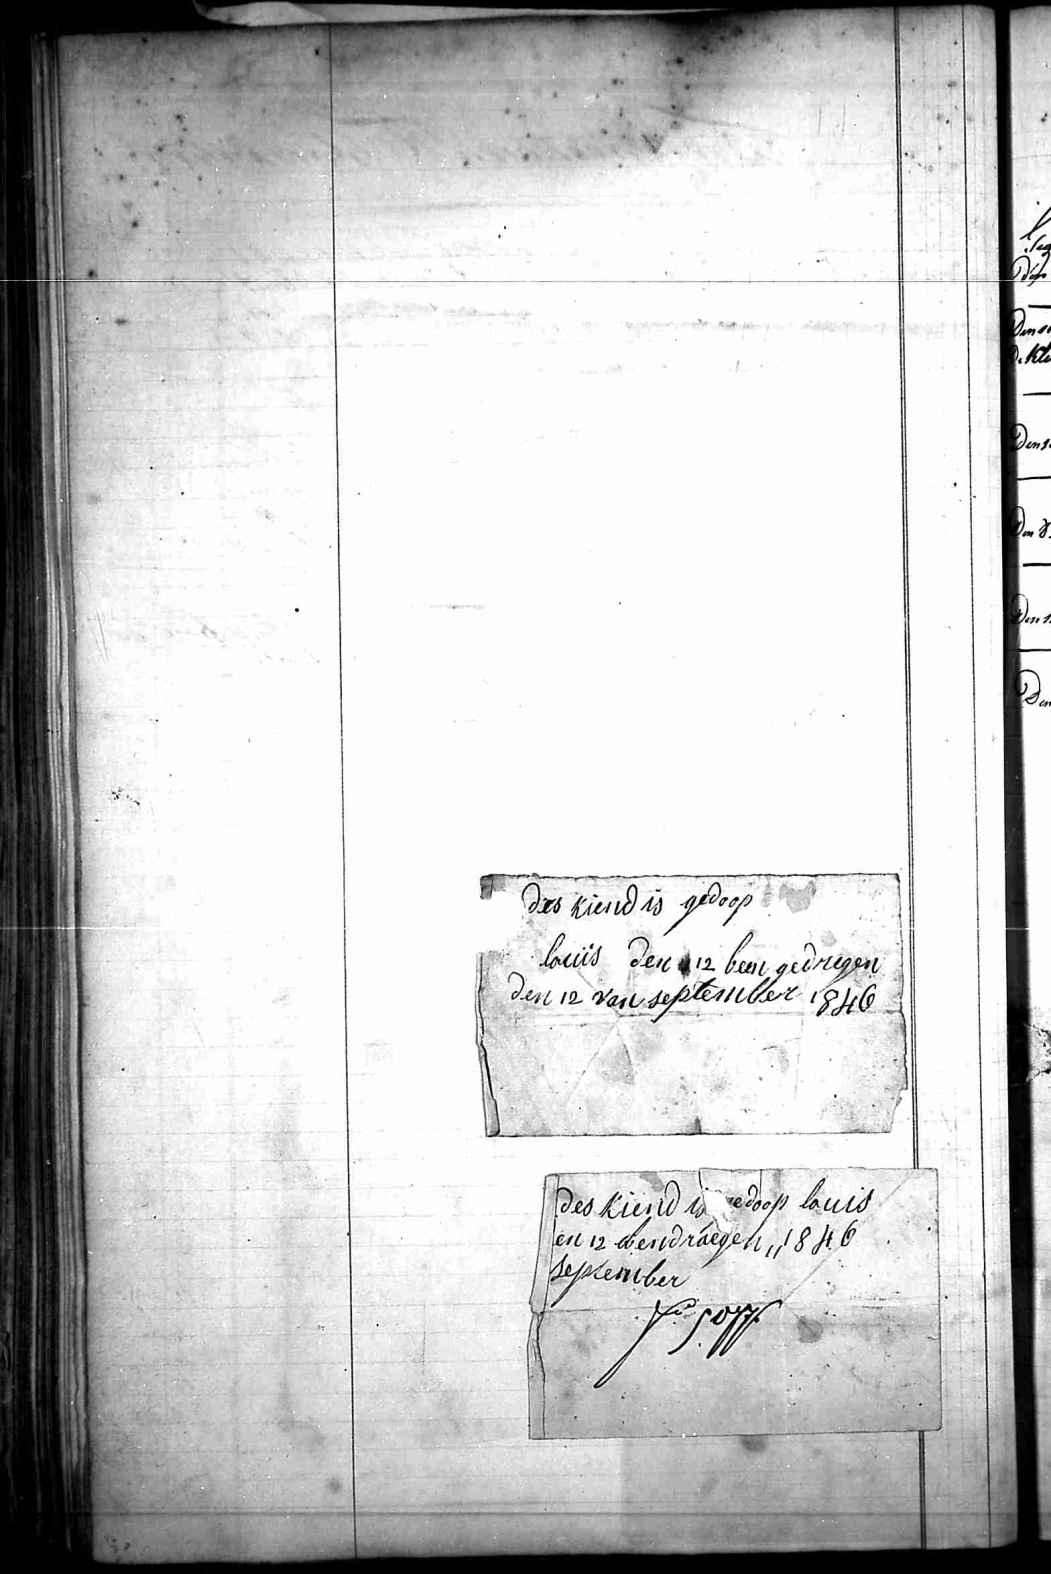 des kiend is gedoop
louis den 12 been gedregen
den 12 van september 1846
des kiend is gedoop louis
en 12 bendraegen,, 1846
September